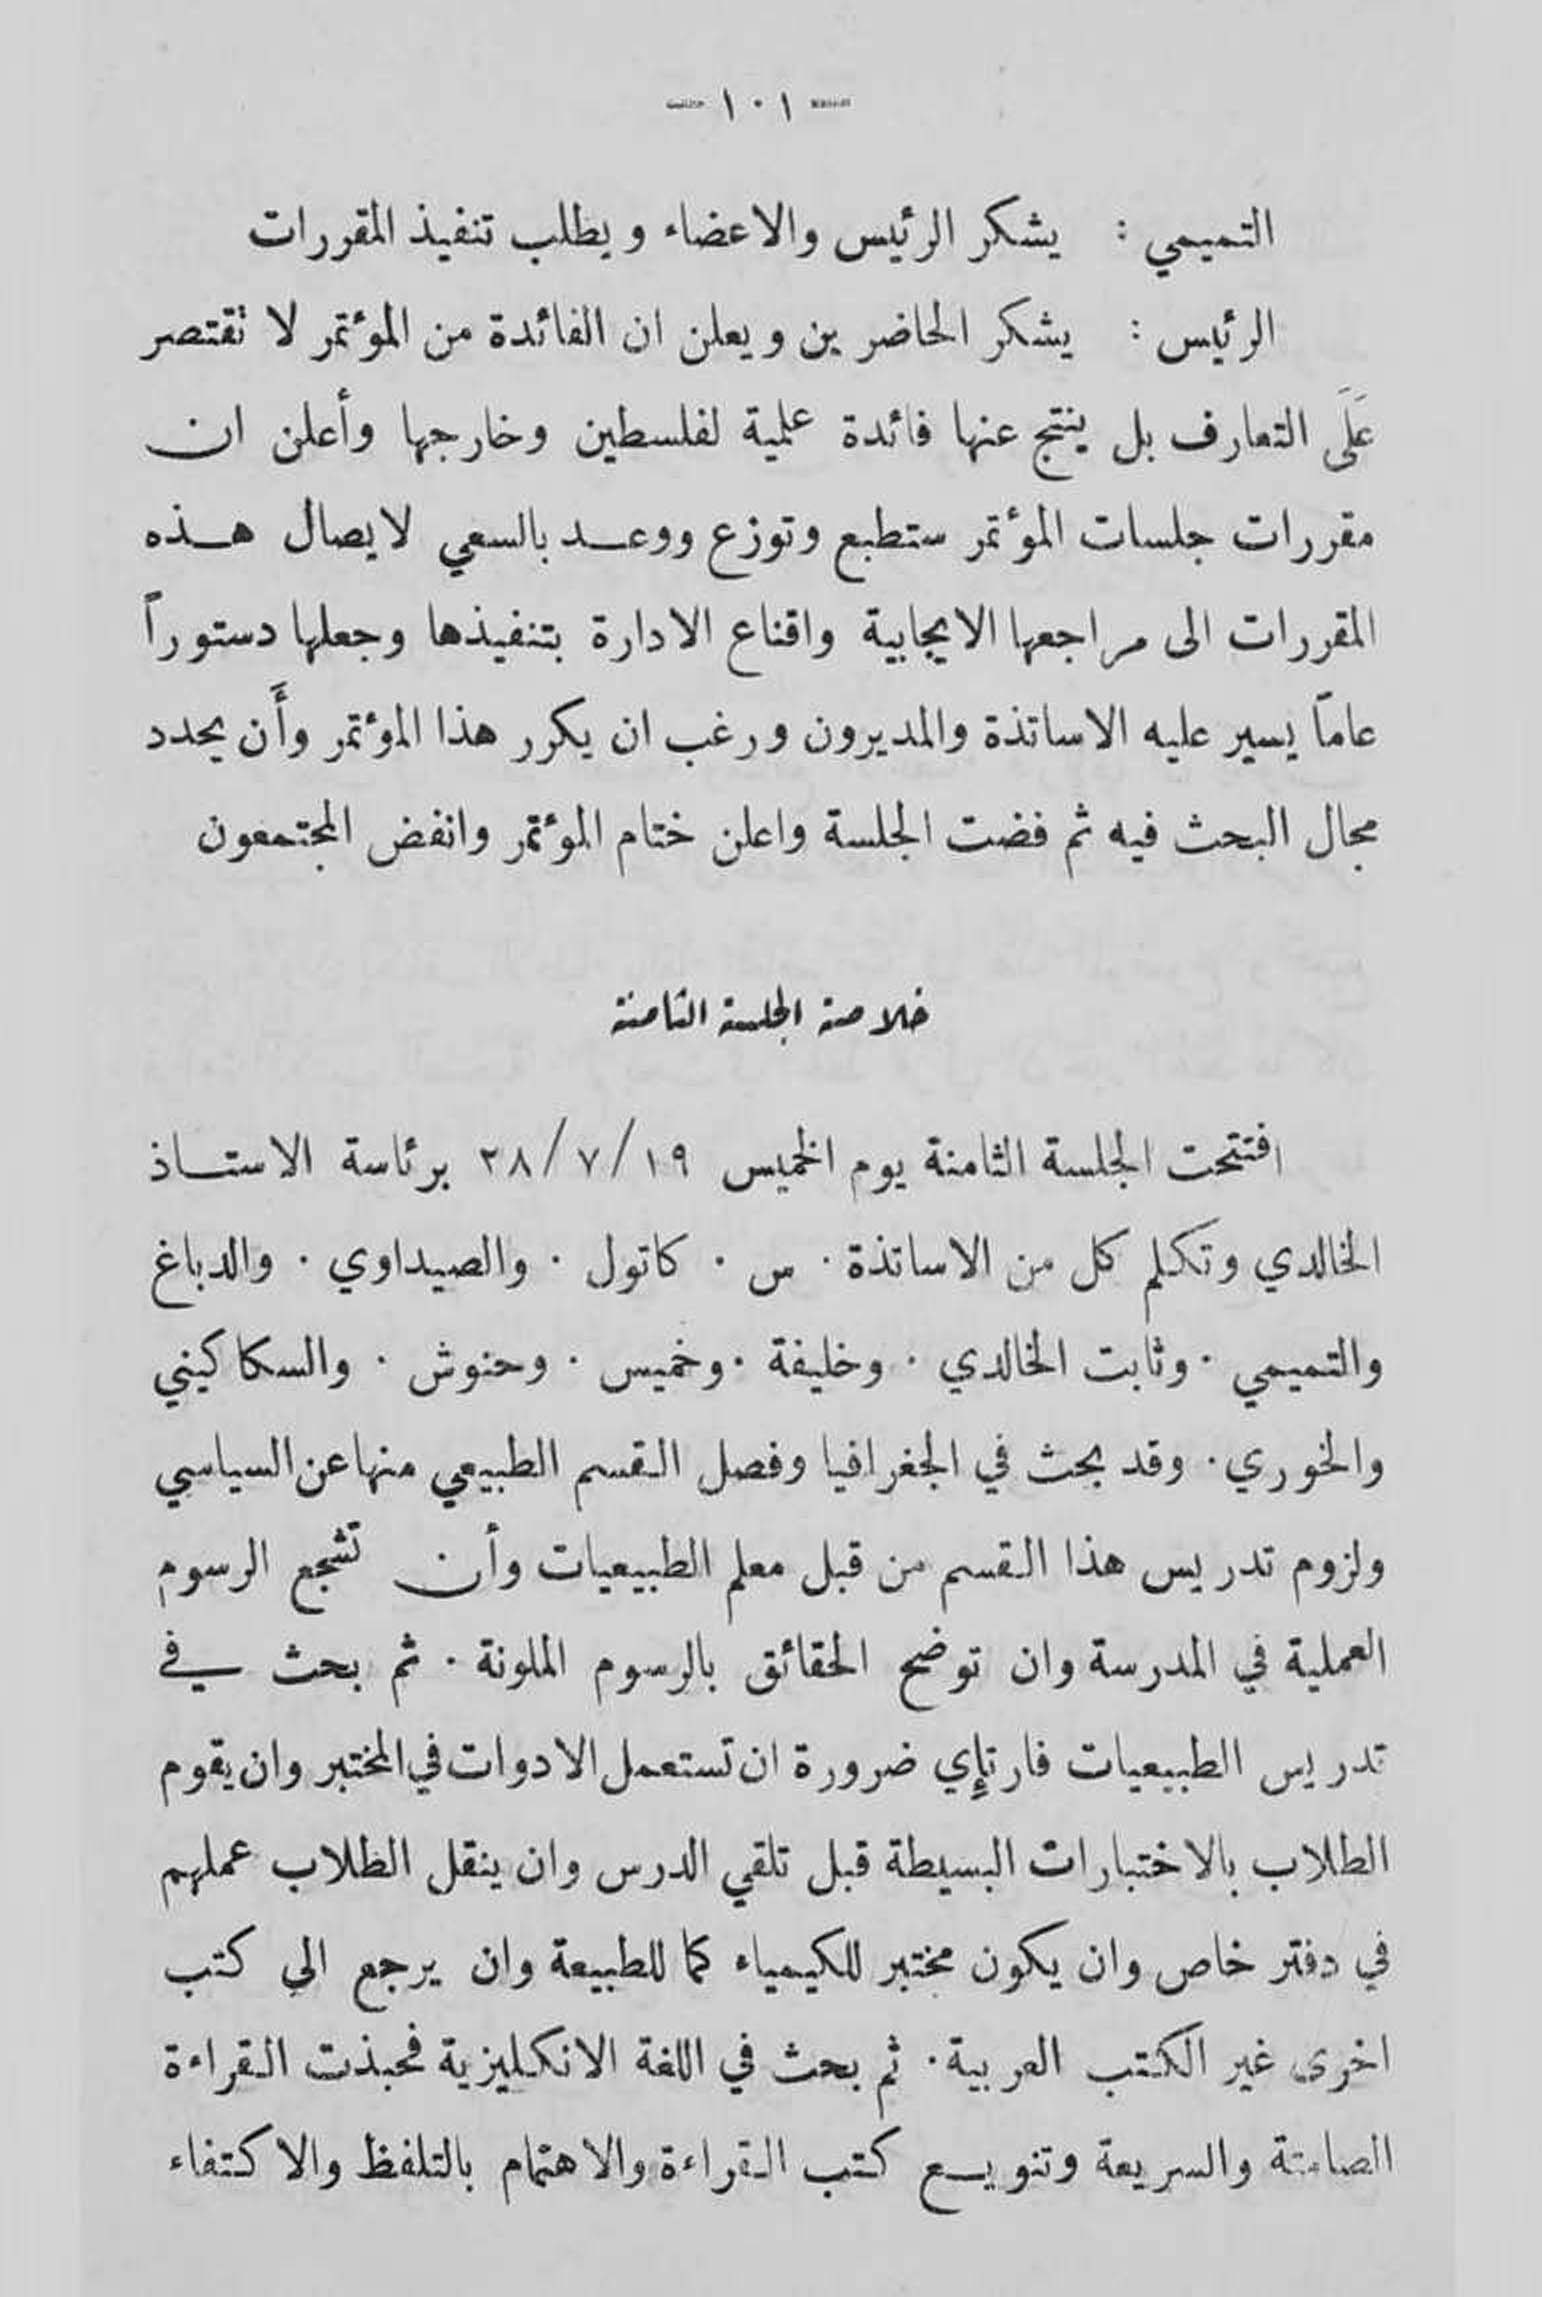 — ١٠١ —
التميمي : يشكر الرئيس والاعضاء ويطلب تنفيذ المقررات
الرئيس : يشكر الحاضرين ويعلن ان الفائدة من المؤتمر لا تقتصر
عَلَى التعارف بل ينتج عنها فائدة علمية لفلسطين وخارجها وأعلن ان
مقررات جلسات المؤتمر ستطبع وتوزع ووعد بالسعي لايصال هذه
المقررات الى مراجعها الايجابية واقناع الادارة بتنفيذها وجعلها دستوراً
عامّا يسير عليه الاساتذة والمديرون ورغب ان يكرر هذا المؤتمر وأَن يحدد
مجال البحث فيه ثم فضت الجلسة واعلن ختام المؤتمر وانفض المجتمعون
خلاصة الجلسة الثامنة
افتتحت الجلسة الثامنة يوم الخميس ١٩/٧/٢٨ برئاسة الاستاذ
الخالدي وتكلم كل من الاساتذة . س . كاتول . والصيداوي . والدباغ
والتميمي . وثابت الخالدي . وخليفة . وخميس . وحنوش . والسكاكيني
والخوري . وقد بحث في الجغرافيا وفصل القسم الطبيعي منها عن السياسي
ولزوم تدريس هذا القسم من قبل معلم الطبيعيات وأن تشجع الرسوم
العملية في المدرسة وان توضح الحقائق بالرسوم الملونة . ثم بحث في
تدريس الطبيعيات فارتإي ضرورة ان تستعمل الادوات في المختبر وان يقوم
الطلاب بالاختبارات البسيطة قبل تلقي الدرس وان ينقل الطلاب عملهم
في دفتر خاص وان يكون مختبر للكيمياء كما للطبيعة وان يرجع الى كتب
اخرى غير الكتب العربية . ثم بحث في اللغة الانكليزية فحبذت القراءة
الصامتة والسريعة وتنويع كتب القراءة والاهتمام بالتلفظ والاكتفاء